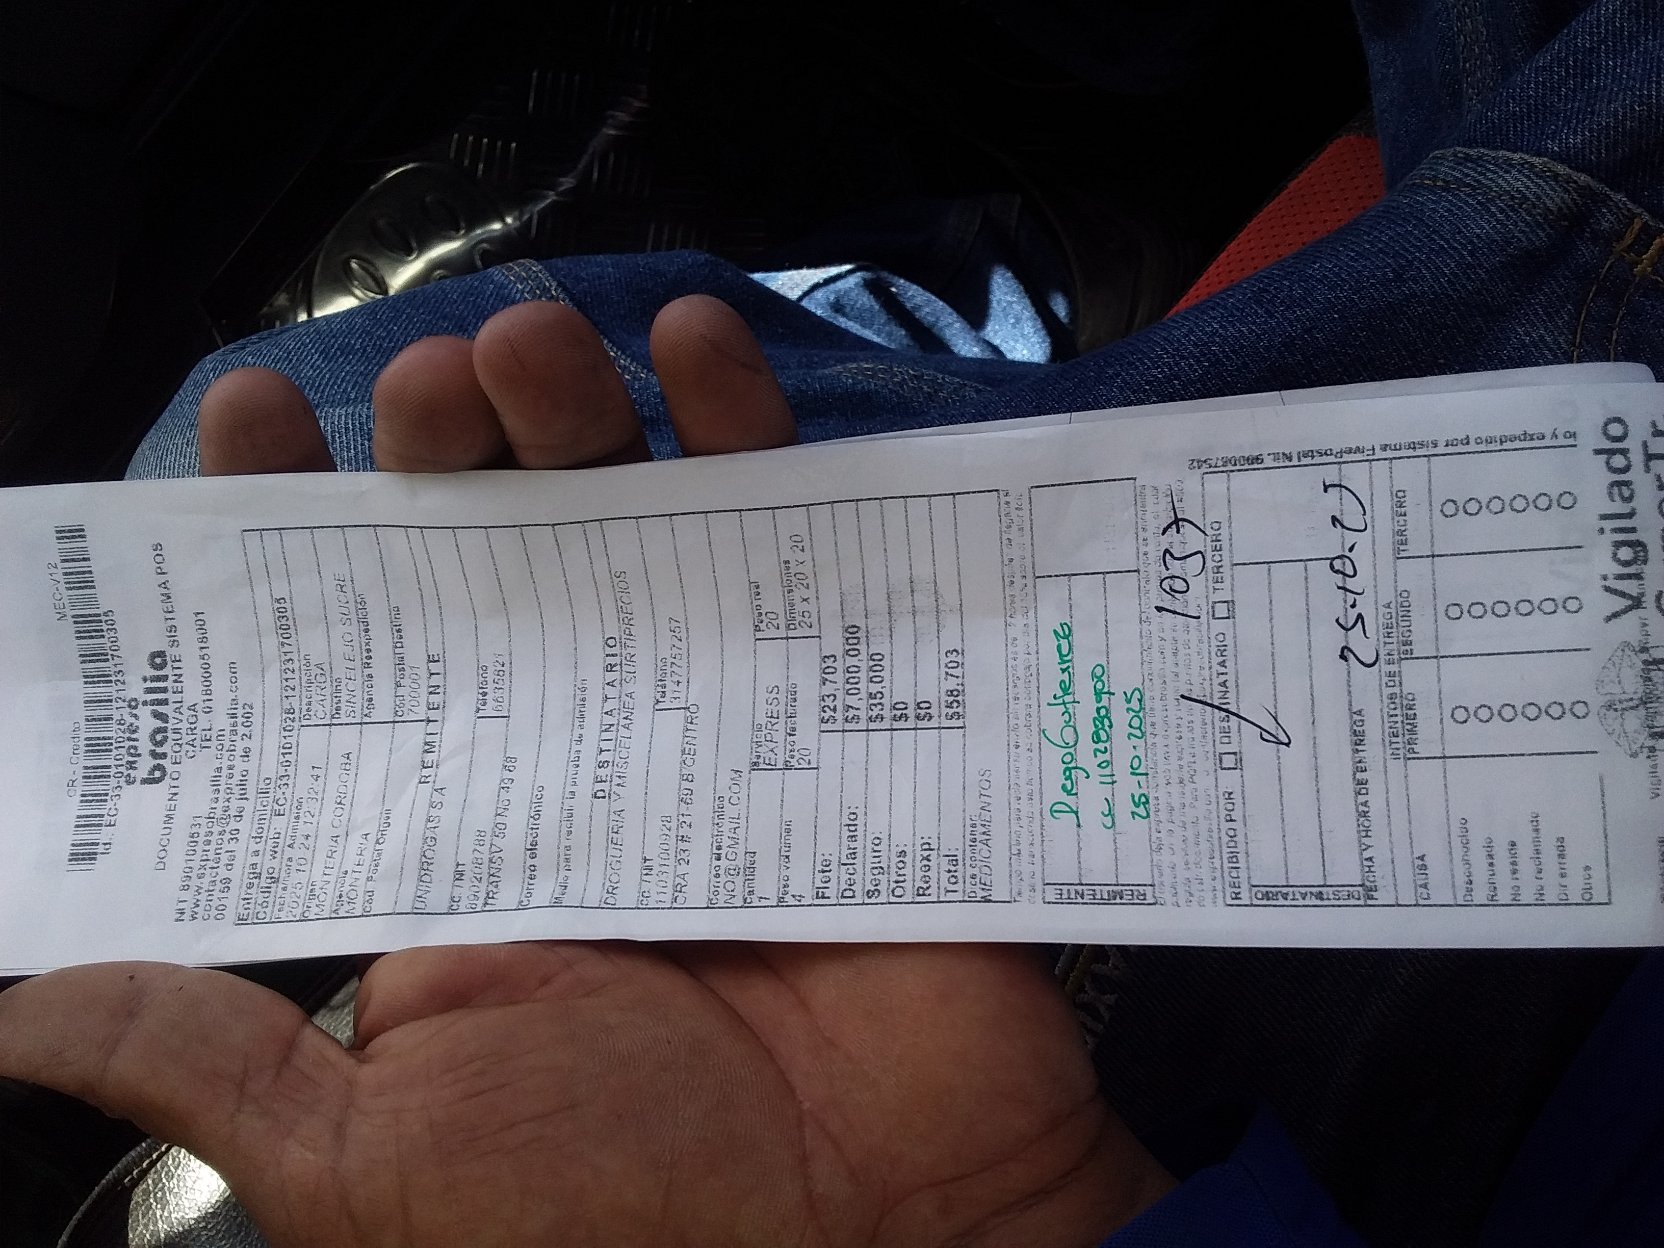 CR - Credito MEC-V12
Id.: EC-33-0101028-12123170​0305
expreso
brasilia
DOCUMENTO EQUIVALENTE SISTEMA POS
CARGA
NIT 890100531 TEL. 018000518001
www.expresobrasilia.com
contactenos@expresobrasilia.com
00159 del 30 de julio de 2.002
Entrega a domicilio
Código Web: EC-33-0101028-121231700305
Fecha/Hora Admision Descripción
2025 10 24 12:32:41 CARGA
Origen Destino
MONTERIA CORDOBA SINCELEJO SUCRE
Agencia Agencia Reexpedición
MONTERIA
Cód. Postal Origen Cód. Postal Destino
700001
REMITENTE
UNIDROGAS S A
CC / NIT Teléfono
890208788 6635821
TRANSV 30 No 49 68
Correo electrónico
Medio para recibir la prueba de admisión
DESTINATARIO
DROGUERIA Y MISCELANEA SURTIPRECIOS
CC / NIT Teléfono
1103100928 3147757257
CRA 23 # 21-69 B CENTRO
Correo electrónico
NO@GMAIL.COM
Cantidad Servicio Peso real
1 EXPRESS 20
Peso volumen Peso facturado Dimensiones
4 20 25 X 20 X 20
Flete: $23,703
Declarado: $7,000,000
Seguro: $35,000
Otros: $0
Reexp: $0
Total: $58,703
Dice contener
MEDICAMENTOS
REMITENTE
Diego Gutierrez
cc 1102880900
25-10-2025
1037
RECIBIDO POR DESTINATARIO TERCERO
DESTINATARIO
FECHA Y HORA DE ENTREGA 25-10-25
INTENTOS DE ENTREGA
CAUSA PRIMERO SEGUNDO TERCERO
Desconocido
Rehusado
No reside
No reclamado
Dir errada
Otros
io y expedido por sistema FivePostal Nit. 900087542
Vigilado